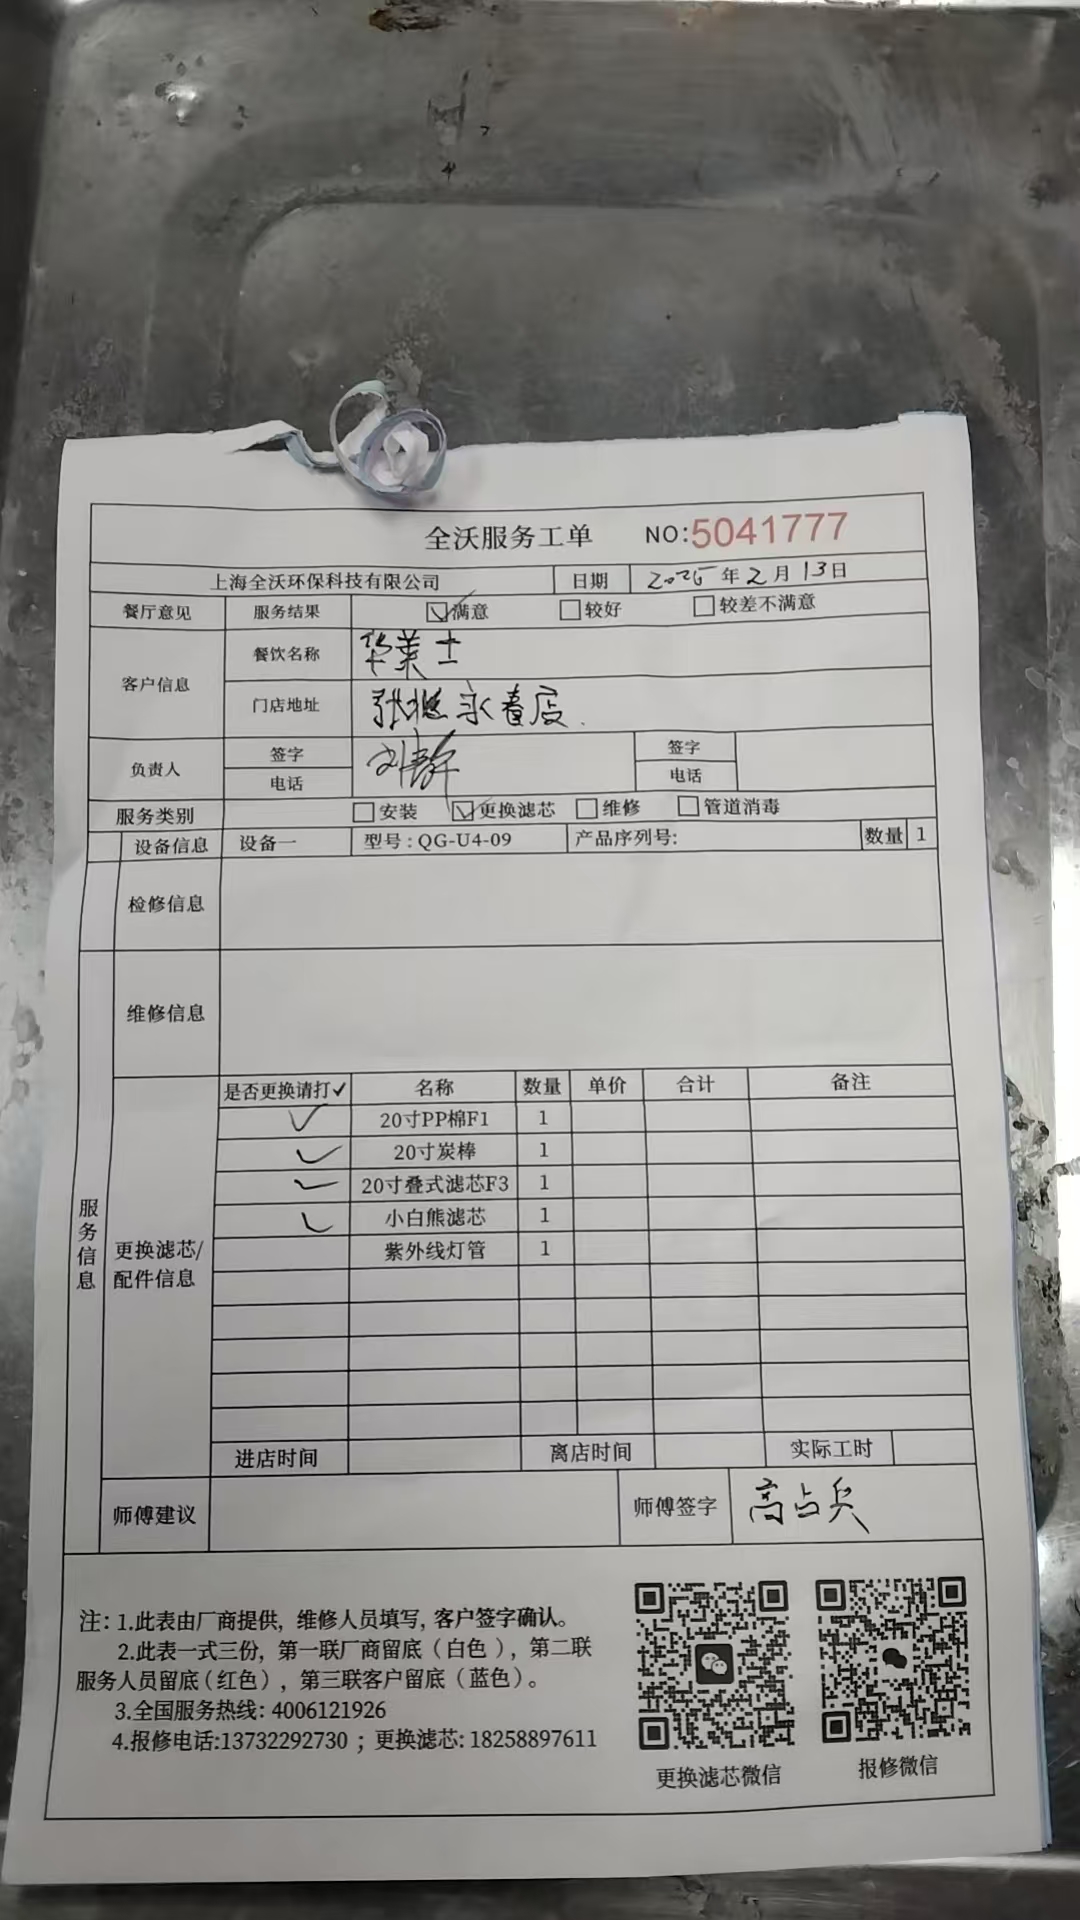 全沃服务工单 NO:5041777
上海全沃环保科技有限公司 日期 2025年2月13日
餐厅意见 服务结果 ☑满意 □较好 □较差不满意
客户信息 餐饮名称 华美士
门店地址 张掖永春店.
负责人 签字 电话 刘静 签字 电话
服务类别 □安装 ☑更换滤芯 □维修 □管道消毒
设备信息 设备一 型号:QG-U4-09 产品序列号: 数量 1
检修信息
维修信息
服务信息
更换滤芯/配件信息
是否更换请打✓ 名称 数量 单价 合计 备注
✓ 20寸PP棉F1 1
✓ 20寸炭棒 1
✓ 20寸叠式滤芯F3 1
✓ 小白熊滤芯 1
紫外线灯管 1
进店时间 离店时间 实际工时
师傅建议 师傅签字 高占兵
注:1.此表由厂商提供, 维修人员填写, 客户签字确认。
2.此表一式三份, 第一联厂商留底(白色), 第二联
服务人员留底(红色), 第三联客户留底(蓝色)。
3.全国服务热线: 4006121926
4.报修电话:13732292730 ; 更换滤芯: 18258897611
更换滤芯微信 报修微信